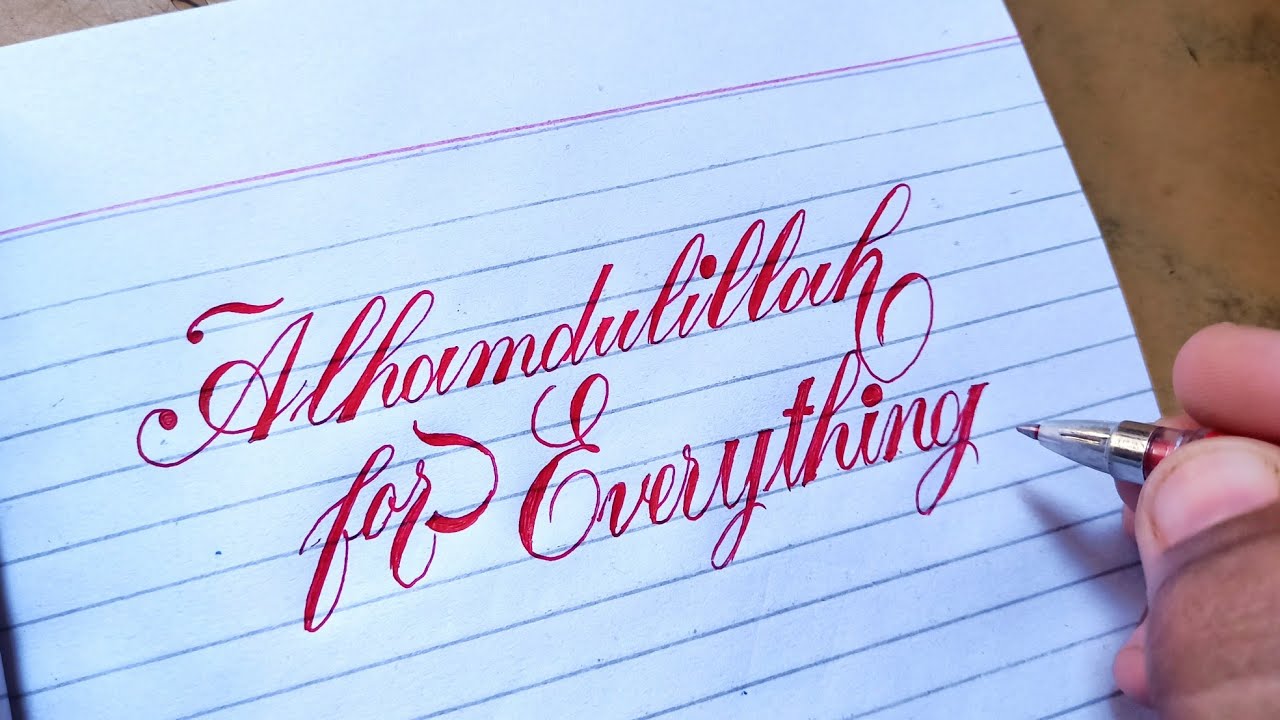 Alhamdulillah
for Everything